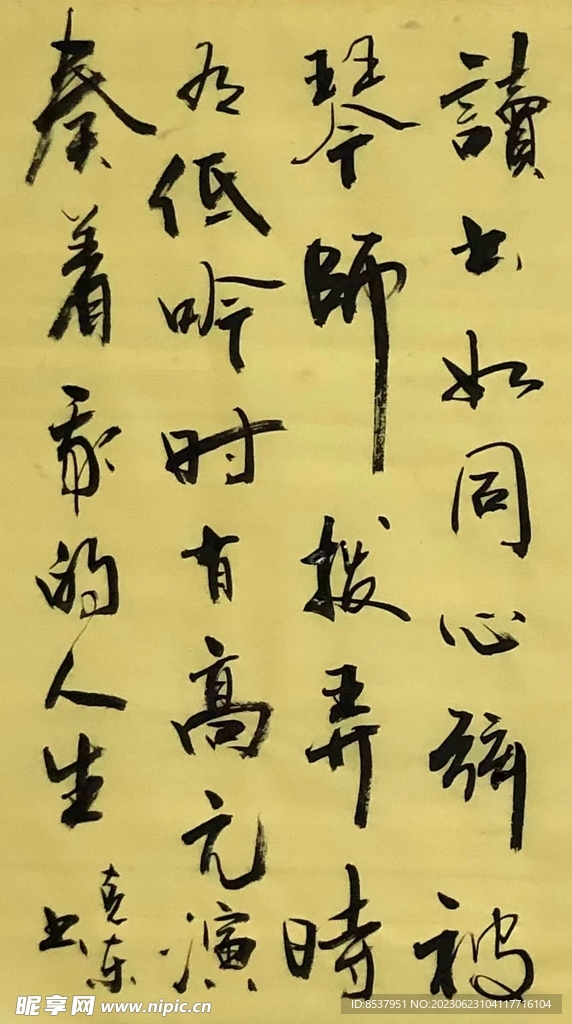 讀书如同心弦被
琴師拨弄時
有低吟时有高亢演
奏着我的人生
克东
书
昵享网 www.nipic.cn
ID:8537951 NO:20230623104117716104